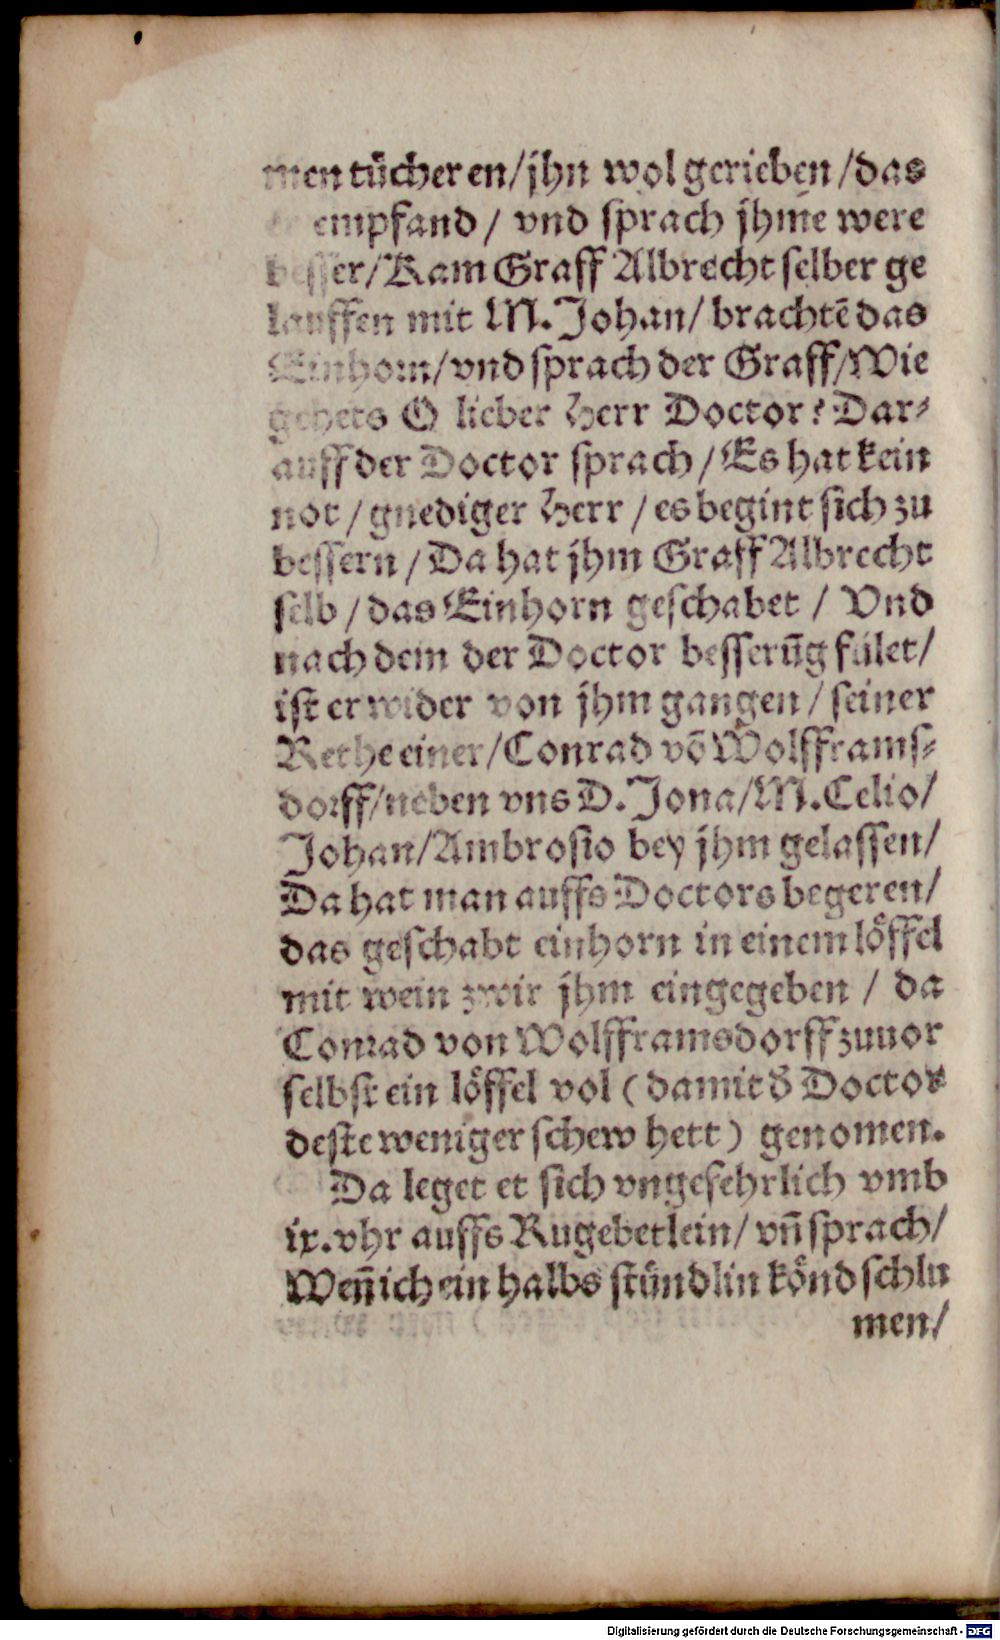 men tücheren/jhn wol gerieben/das
er empfand / vnd sprach jhme were
besser/Kam Graff Albrecht selber ge
lauffen mit M. Johan/ brachtē das
Einhorn/vnd sprach der Graff/Wie
gehets O lieber Herr Doctor? Dar⸗
auff der Doctor sprach/Es hat kein
not/gnediger Herr/es begint sich zu
bessern/Da hat jhm Graff Albrecht
selb/das Einhorn geschabet / Vnd
nach dem der Doctor besserūg fület/
ist er wider von jhm gangen/seiner
Rethe einer/Conrad vō Wolfframs⸗
dorff/neben vns D. Jona/M. Celio/
Johan/Ambrosio bey jhm gelassen/
Da hat man auffs Doctors begeren/
das geschabt einhorn in einem löffel
mit wein zwir jhm eingegeben / da
Conrad von Wolfframsdorff zuuor
selbst ein löffel vol (damit d̄ Doctor
deste weniger schew hett) genomen.
Da leget et sich vngefehrlich vmb
ix. vhr auffs Rugebetlein/ vn̄ sprach/
Wen̄ ich ein halbs stündlin könd schlu
men/
Digitalisierung gefördert durch die Deutsche Forschungsgemeinschaft - DFG